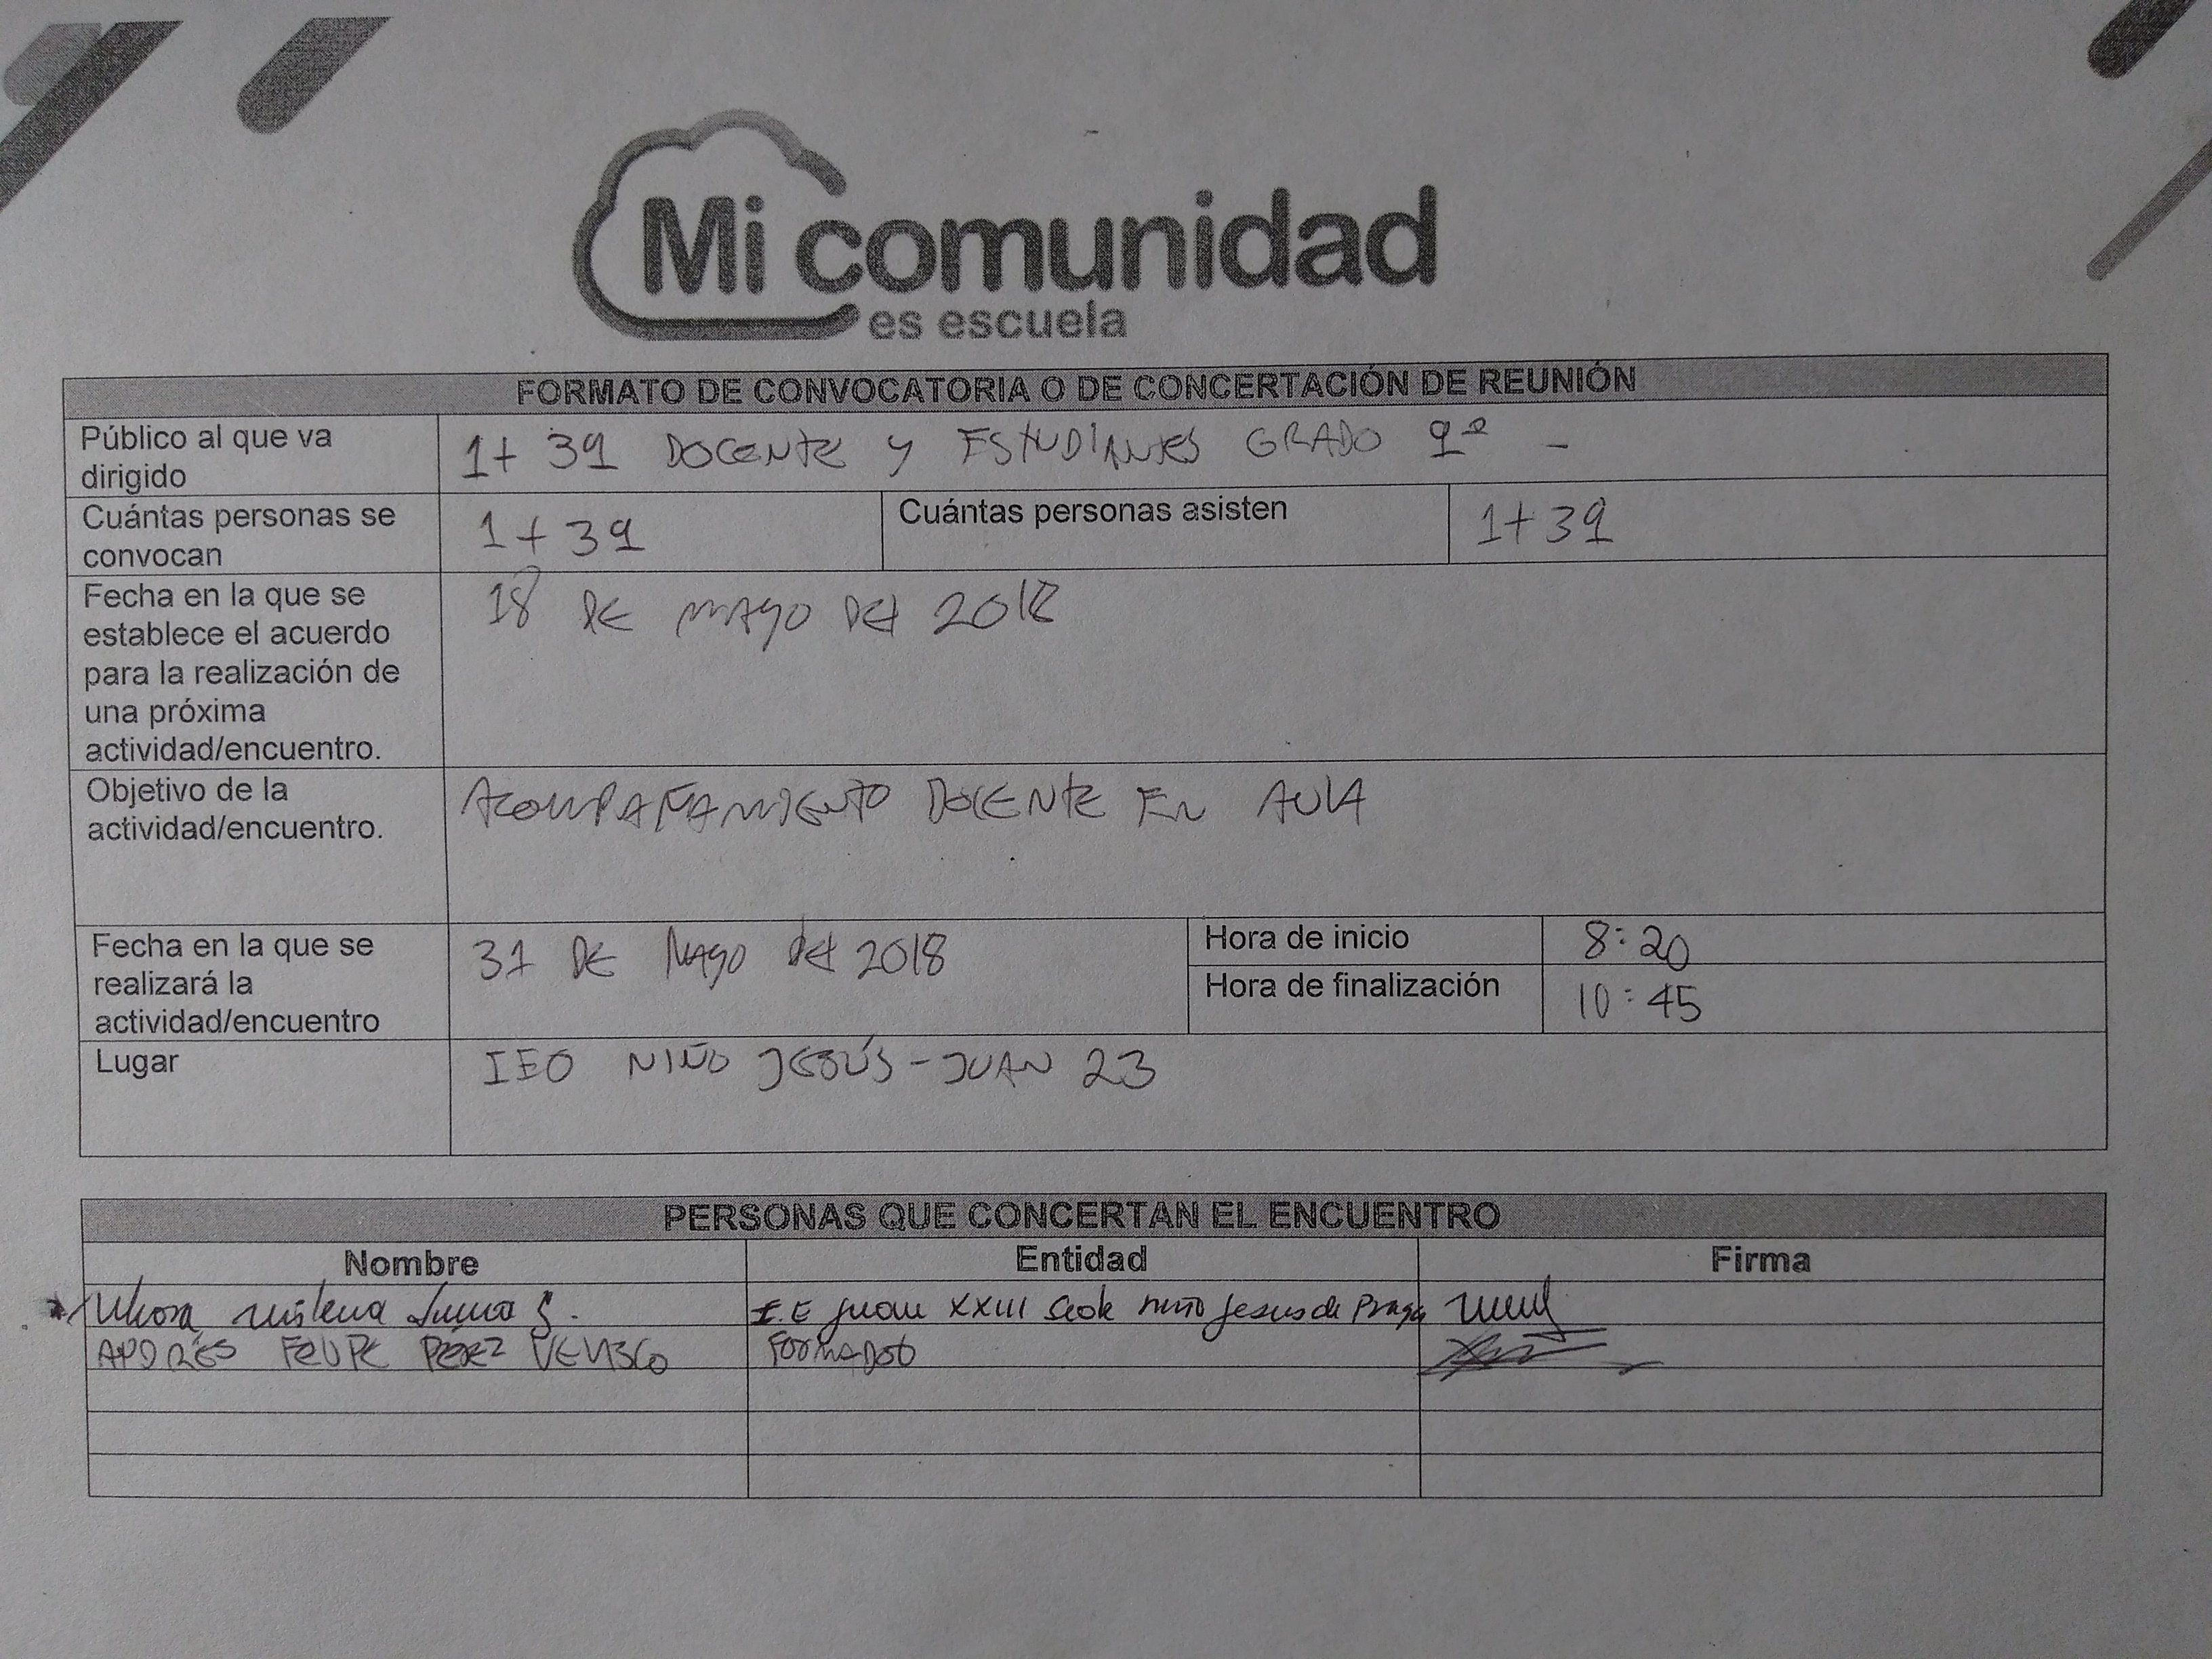 Mi comunidad
es escuela
FORMATO DE CONVOCATORIA O DE CONCERTACIÓN DE REUNIÓN
Público al que va
dirigido
1+ 39 DOCENTE y ESTUDIANTES GRADO 9º -
Cuántas personas se
convocan
1+39
Cuántas personas asisten
1+39
Fecha en la que se
establece el acuerdo
para la realización de
una próxima
actividad/encuentro.
18 DE MAYO DEL 2018
Objetivo de la
actividad/encuentro.
ACOMPAÑAMIENTO DOCENTE EN AULA
Fecha en la que se
realizará la
actividad/encuentro
31 DE MAYO DEL 2018
Hora de inicio
8:20
Hora de finalización
10:45
Lugar
IEO NIÑO JESÚS - JUAN 23
PERSONAS QUE CONCERTAN EL ENCUENTRO
Nombre
Entidad
Firma
milena
I.E Juan XXIII Sede niño Jesus de Praga
ANDRÉS FELIPE PÉREZ VELASCO
FORMADOR